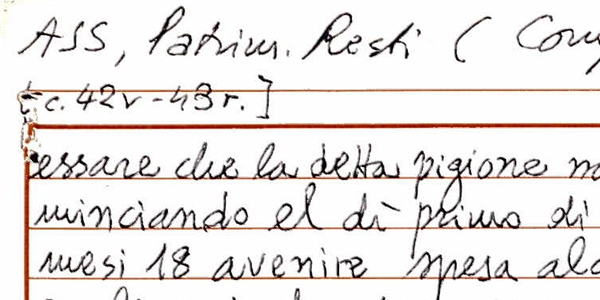 ASS, Patrim. Resti ( Com
[c. 42v - 43r.]
essare che la detta pigione
minciando el dì primo di
mesi 18 avenire spesa alc